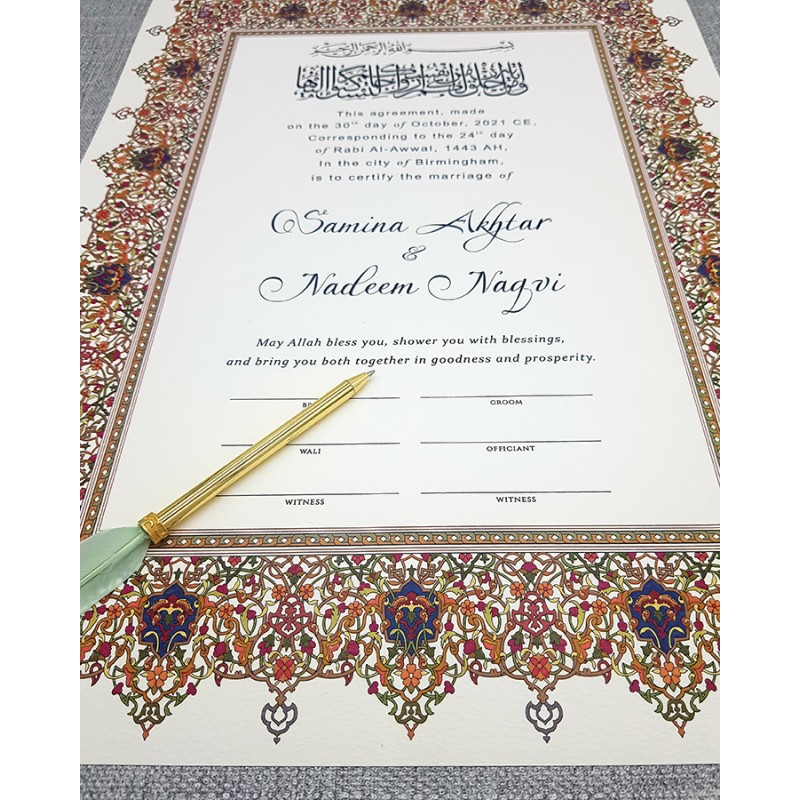 بسم الله الرحمن الرحيم
لتسكنوا إليها
This agreement, made
on the 30th day of October, 2021 CE,
Corresponding to the 24th day
of Rabi Al-Awwal, 1443 AH,
In the city of Birmingham,
is to certify the marriage of
Samina Akhtar
&
Nadeem Naqvi
May Allah bless you, shower you with blessings,
and bring you both together in goodness and prosperity.
GROOM
WALI OFFICIANT
WITNESS WITNESS